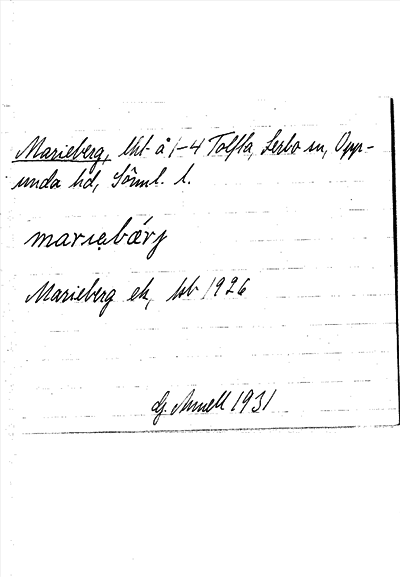 Marieberg, lht å 1-4 Tolfta, Lerbo sn, Opp-
unda hd, Sörml. l.
mariebærj
Marieberg ek, kb 1926
Gj. Annell 1931